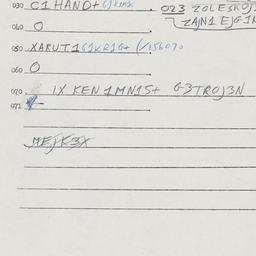 030 C1 HAND+
023 ZOLESKOJ
ZAJN1 EJG1N
040 O
050 XARUT1GJKR1G+ (/156070
060 O
070 IX KEN 1MN1S+ G3TROJ3N
071
MEJK3X